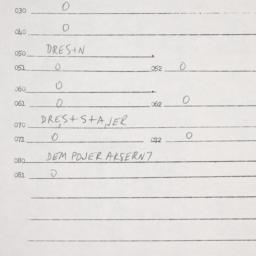 030 0
040 0
050 DRES+N
051 0 052 0
060 0
061 0 062 0
070 DRES+S+A,JER
071 0 072 0
080 DEM POWER AKSERN7
081 0